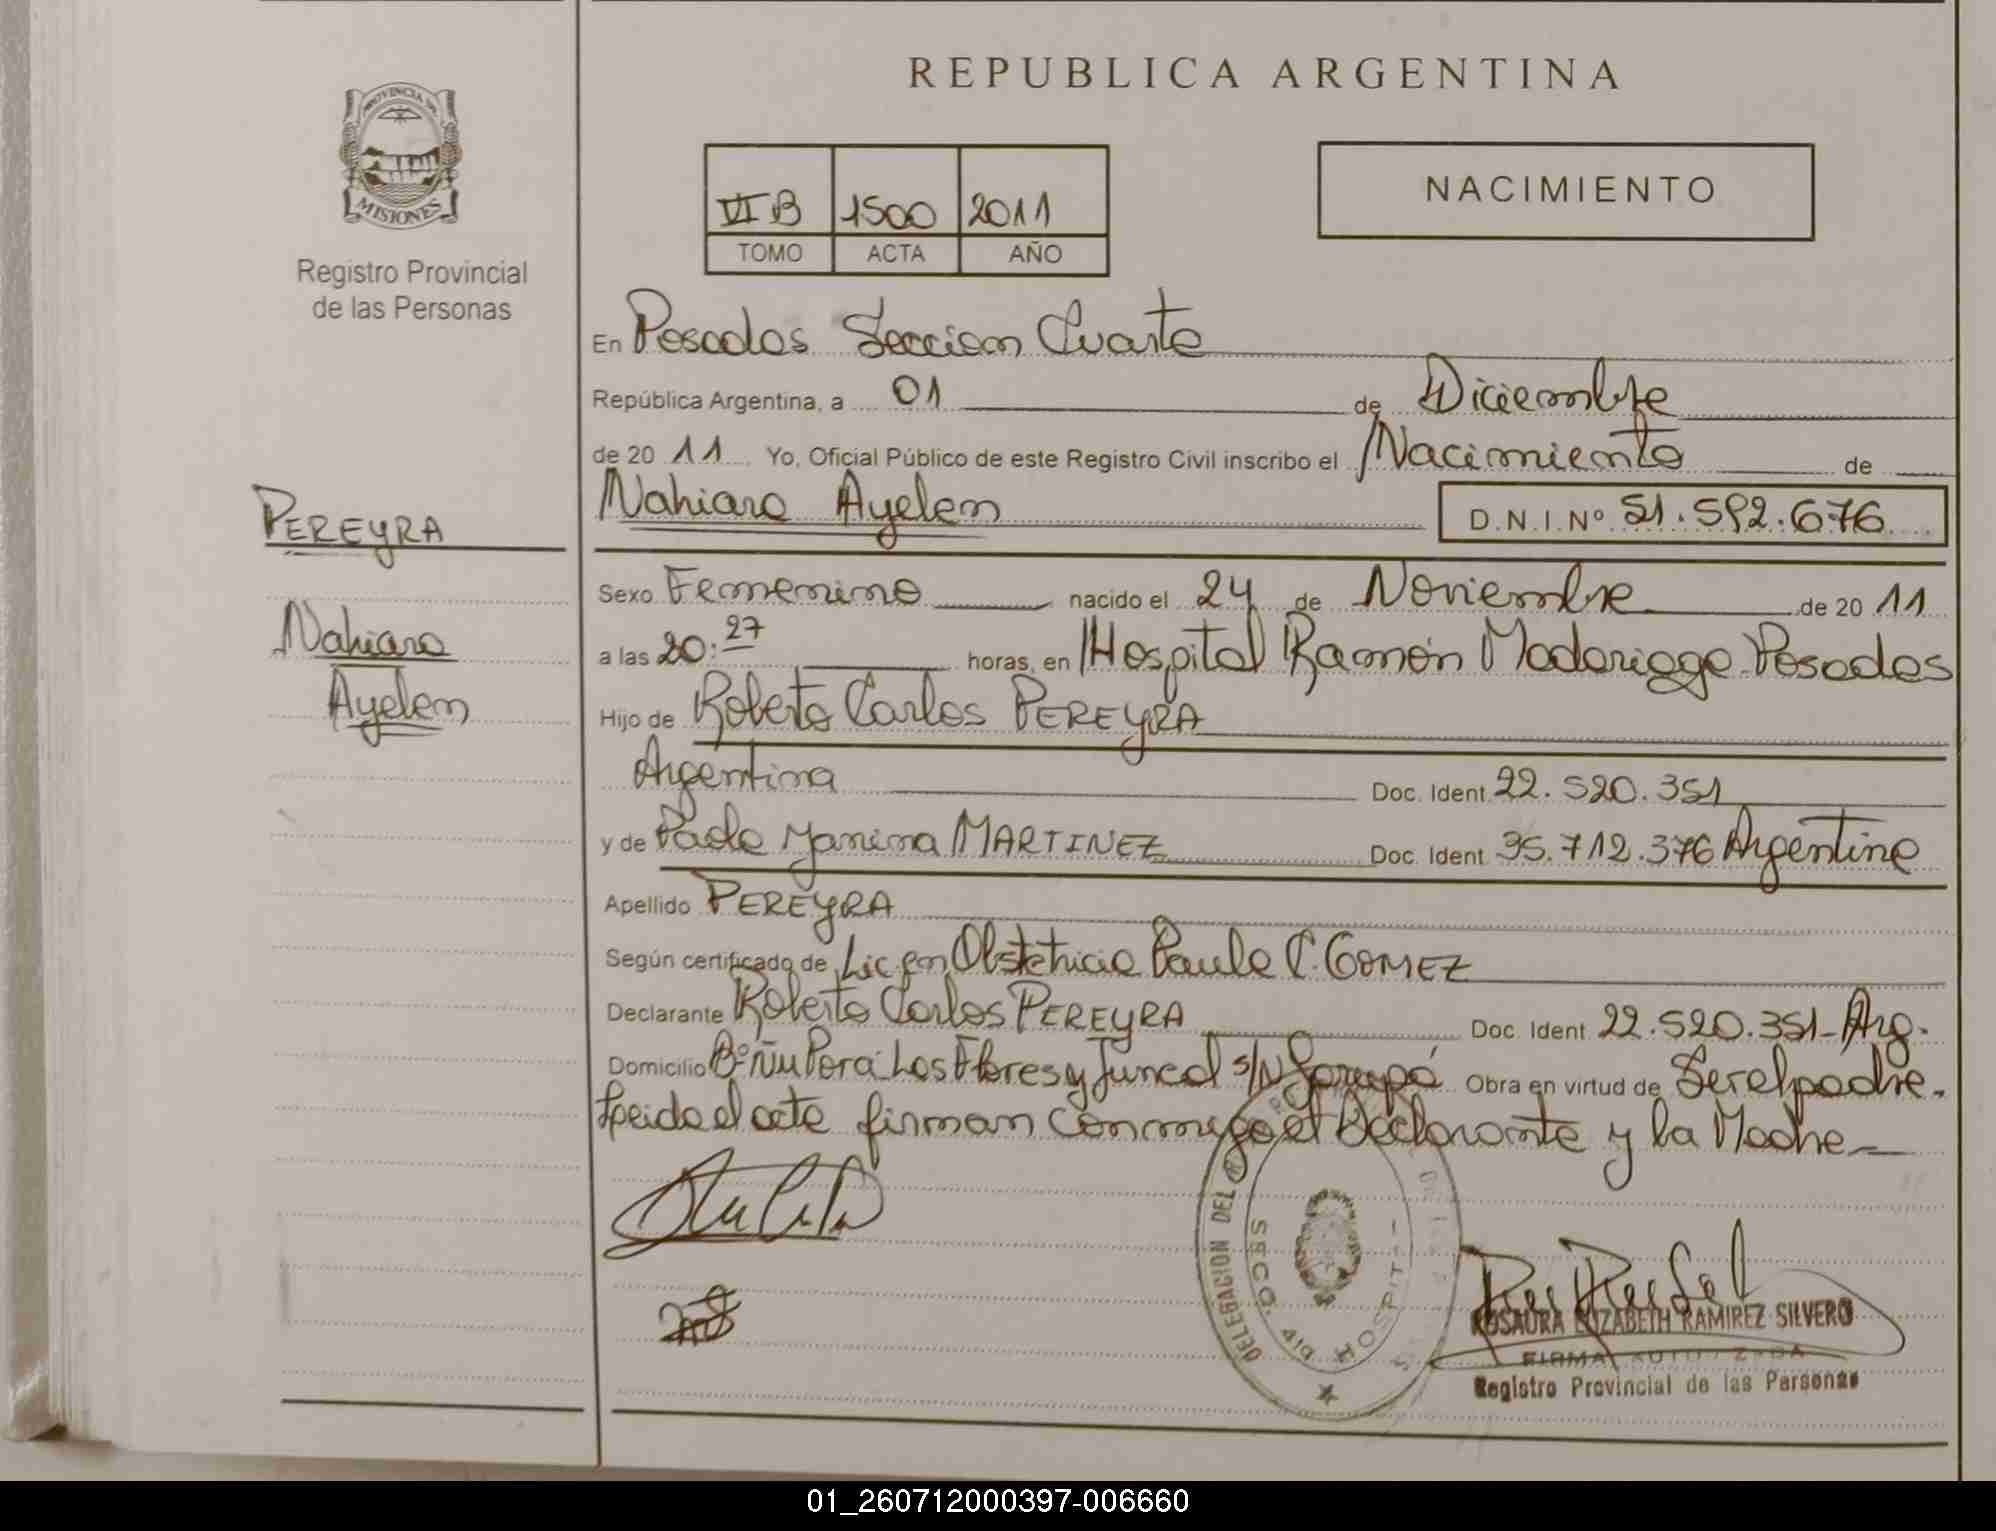 REPUBLICA ARGENTINA
PROVINCIA DE
MISIONES
Registro Provincial
de las Personas
VI B 1500 2011
TOMO ACTA AÑO
NACIMIENTO
En Posadas Seccion Cuarta
República Argentina, a 01 de Diciembre
de 20 11 Yo, Oficial Público de este Registro Civil inscribo el Nacimiento de
Nahiara Ayelen D.N.I.Nº 51.592.676
PEREYRA
Nahiara
Ayelen
Sexo Femenino nacido el 24 de Noviembre de 20 11
a las 20:27 horas, en Hospital Ramón Madariaga Posadas
Hijo de Roberto Carlos PEREYRA
Argentina Doc. Ident. 22.520.351
y de Paola Yanina MARTINEZ Doc. Ident. 35.712.376 Argentina
Apellido PEREYRA
Según certificado de Lic en Obstetricia Paula C. GOMEZ
Declarante Roberto Carlos PEREYRA Doc. Ident. 22.520.351-Arg.
Domicilio Bº Ñu Porá Las Flores y Juncal s/N Garupá Obra en virtud de Ser el padre.
Leida el acta firman conmigo el Declarante y la Madre
DELEGACION DEL
SECC. 4ta HOSPIT
ROSAURA ELIZABETH RAMIREZ SILVERO
FIRMA AUTORIZADA
Registro Provincial de las Personas
01_260712000397-006660